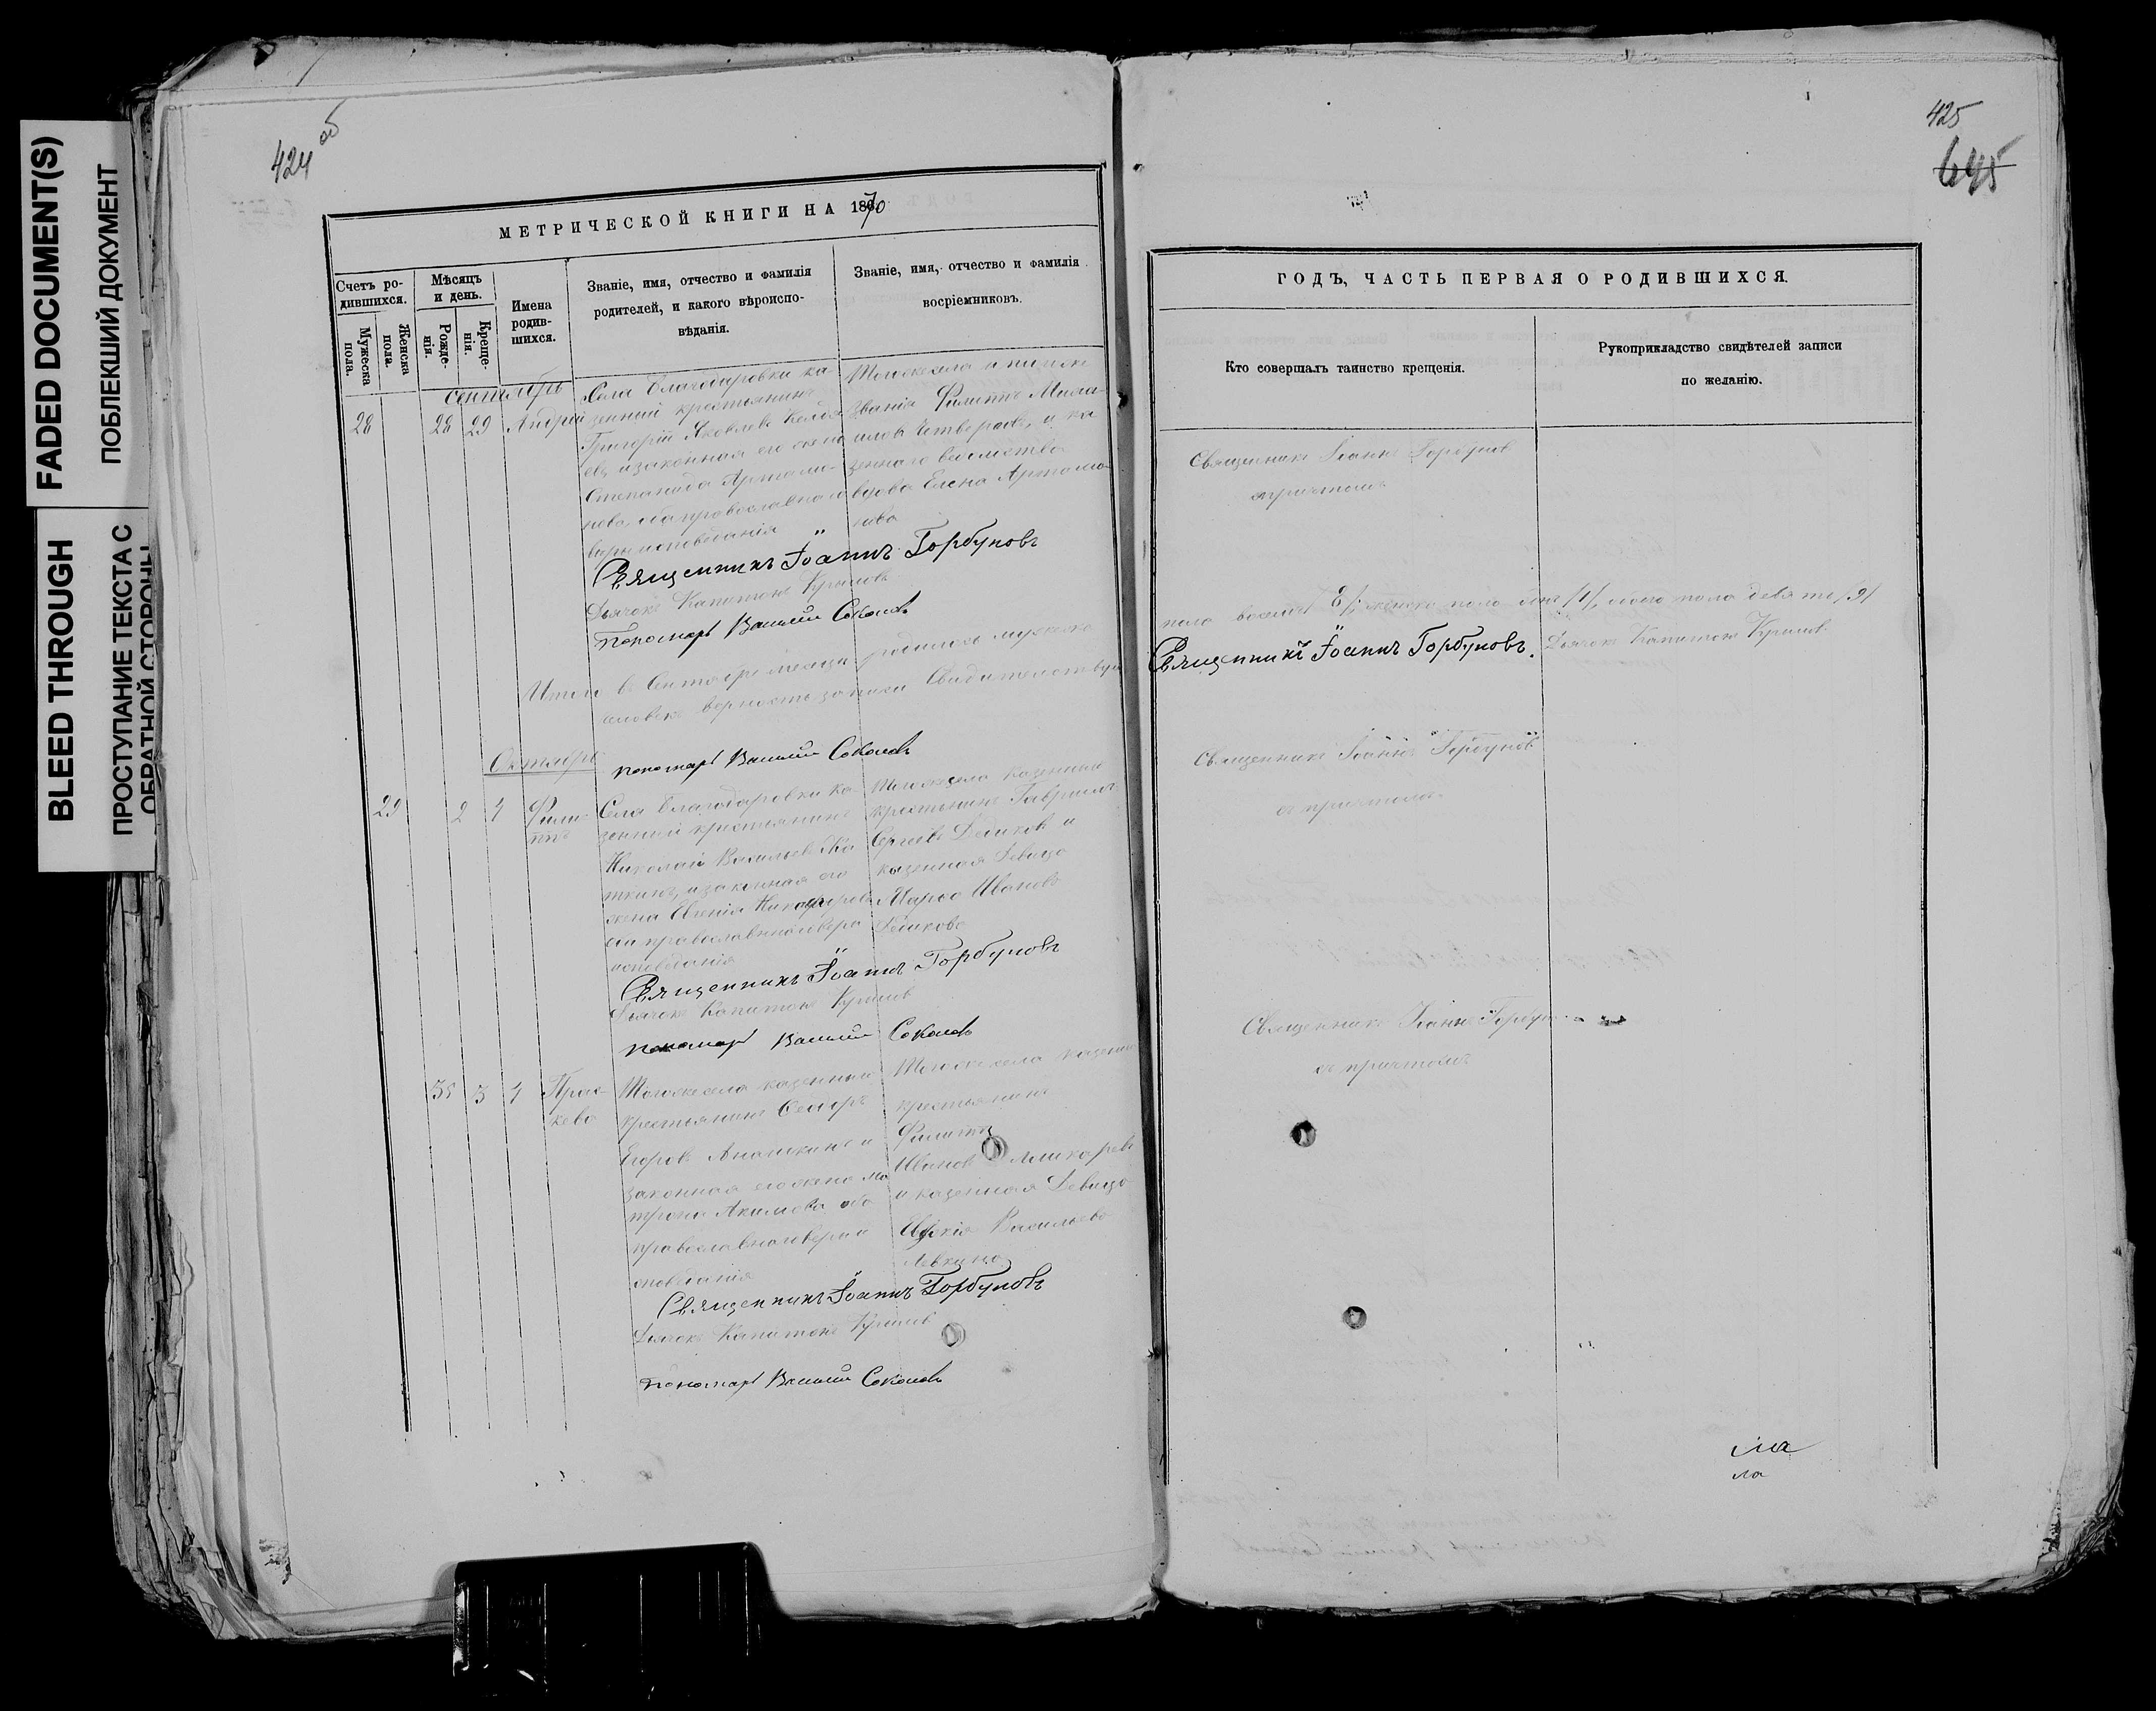 FADED DOCUMENT(S)
ПОБЛЕКШИЙ ДОКУМЕНТ
BLEED THROUGH
ПРОСТУПАНИЕ ТЕКСТА С
ОБРАТНОЙ СТОРОНЫ
424 об
МЕТРИЧЕСКОЙ КНИГИ НА 1870
Счетъ ро-
дившихся.
Мужеска
пола.
Женска
пола.
Мѣсяцъ
и день.
Рожде-
нія.
Креще-
нія.
Имена
родив-
шихся.
Званіе, имя, отчество и фамилія
родителей, и какого вѣроиспо-
вѣданія.
Званіе, имя, отчество и фамилія
воспріемниковъ.
Сентябрь
28 28 29 Андрей
Села Благодаровки ка-
зенный крестьянинъ
Григорій Яковлевъ
и законная его жена
Степанида Артамо-
нова, оба православнаго
вероисповеданія
Тогоже села
званія Филиппъ
Четверговъ, и ка
зеннаго ведомства
вдова Елена Артамо
нова
Священникъ Іоаннъ Горбуновъ
Дьячокъ Капитонъ Крыловъ
Пономарь Василий Соколовъ
Итого въ Сентябре месяце родилося мужеска
человекъ верность записи Свидетельствую
пономарь Василий Соколовъ
Октябрь
29 2 4 Фили-
ппъ
Села Благодаровки ка-
зенный крестьянинъ
Николай Васильевъ
и законная его
жена Евгенія Никифорова
оба православнаго веро
исповеданія
Тогоже села казенный
крестьянинъ Гавриилъ
Сергеевъ Дедиковъ и
казенная девица
Марѳа Иванова
Дедикова
Священникъ Іоаннъ Горбуновъ
Дьячокъ Капитонъ Крыловъ
Пономарь Василий Соколовъ
35 3 4 Прас-
кева
Тогоже села казенный
крестьянинъ
Егоровъ Ананскинъ и
законная его жена Ма
трона Акимова оба
православнаго верои
споведанія
Тогоже села казенный
крестьянинъ
Филиппъ
Ивановъ
и казенная девица
Васильева
Священникъ Іоаннъ Горбуновъ
Дьячокъ Капитонъ Крыловъ
пономарь Василий Соколовъ
425
645
ГОДЪ, ЧАСТЬ ПЕРВАЯ О РОДИВШИХСЯ.
Кто совершалъ таинство крещенія.
Рукоприкладство свидѣтелей записи
по желанію.
Священникъ Іоаннъ Горбуновъ
съ причтомъ
пола восемь /8/, женска пола /1/, обоего пола девять /9/
Священникъ Іоаннъ Горбуновъ. Дьячокъ Капитонъ Крыловъ
Священникъ Іоаннъ Горбуновъ
съ причтомъ
Священникъ Іоаннъ
съ причтомъ